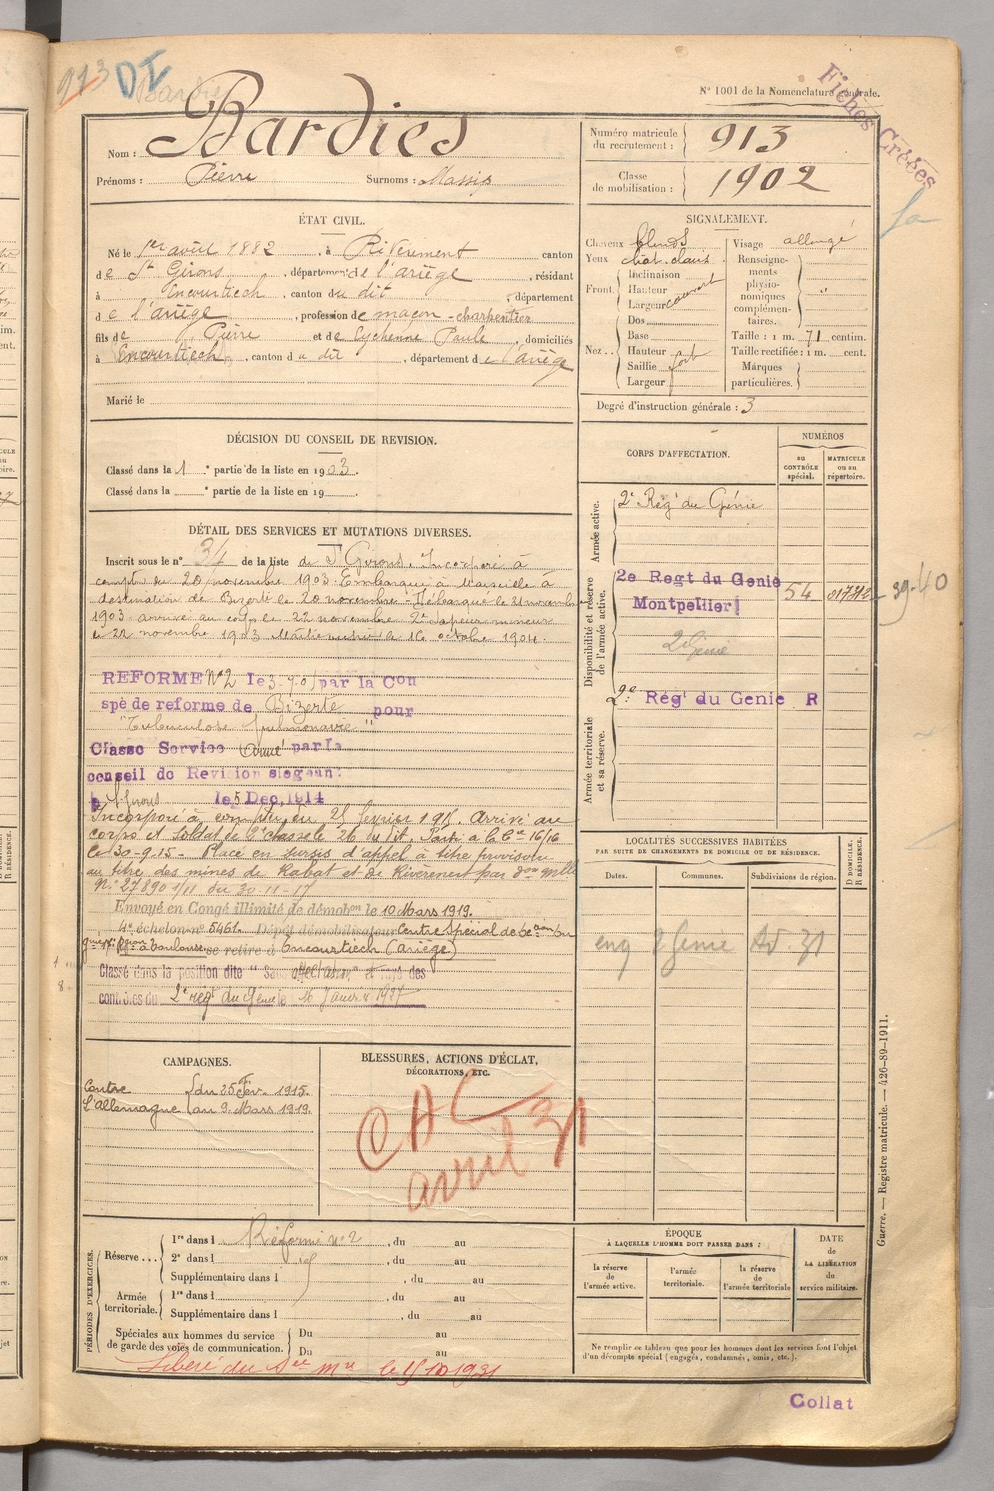 913 DI
N° 1001 de la Nomenclature générale.
Fiches Créées
Nom : Bardies
Prénoms : Pierre Surnoms : Massip
Numéro matricule du recrutement : 913
Classe de mobilisation : 1902
ÉTAT CIVIL.
Né le 1er avril 1882, à Rivèrenert canton
de St Girons, département de l'ariège, résidant
à Encourtiech, canton du dit, département
de l'ariège, profession de maçon-charpentier
fils de Pierre et de Eychenne Paule, domiciliés
à Encourtiech, canton du dit, département de l'ariège
Marié le
SIGNALEMENT.
Cheveux blonds
Yeux chat. clairs
Front. Inclinaison
Hauteur
Largeur couvert
Nez.. Dos
Base
Hauteur
Saillie fort
Largeur
Visage allongé
Renseignements physionomiques complémentaires. "
Taille : 1 m. 71 centim.
Taille rectifiée : 1 m. cent.
Marques particulières.
Degré d'instruction générale : 3
DÉCISION DU CONSEIL DE REVISION.
Classé dans la 1 e partie de la liste en 1903.
Classé dans la e partie de la liste en 19
DÉTAIL DES SERVICES ET MUTATIONS DIVERSES.
Inscrit sous le n° 34 de la liste de St Girons. Incorporé à
compter du 20 novembre 1903. Embarqué à Marseille à
destination de Bizerte le 20 novembre. Débarqué le 21 novembre
1903 arrivé au corps le 22 novembre 2e sapeur mineur
le 22 novembre 1903 Maître ouvrier le 16 octobre 1904.
REFORME N°2 le 3-7-05 par la Con
spé de reforme de Bizerte pour
"Tuberculose pulmonaire"
Classé Service Armé par la
conseil de Revision siegeant
à St Girons le 5 Dec. 1914
Incorporé à compter du 25 février 1915. Arrivé au
corps et soldat de 2e classe le 26 du dit. Passé à la Cie 16/16
le 30-9-15. Placé en sursis d'appel à titre provisoire
au titre des mines de Rabat et de Rivèrenert par don Mlle
N° 27890 1/11 du 30-11-17
Envoyé en Congé illimité de démobon le 10 Mars 1919.
4e échelon n° 5461. Dépôt démobilisateur Centre Spécial de
à Toulouse se retire à Encourtiech (Ariège)
Classé dans la position dite "Sans affectation" et rayé des
contrôles du 2e regt du Génie le 16 Janvier 1927
CORPS D'AFFECTATION.
NUMÉROS
au CONTRÔLE spécial.
MATRICULE ou au répertoire.
Armée active.
2e Régt du Génie
Disponibilité et réserve de l'armée active.
2e Regt du Genie 54 01772
Montpellier
39-40
2 Génie
Armée territoriale et sa réserve.
2e Régt du Genie R
LOCALITÉS SUCCESSIVES HABITÉES
PAR SUITE DE CHANGEMENTS DE DOMICILE OU DE RÉSIDENCE.
D DOMICILE. R RÉSIDENCE.
Dates. Communes. Subdivisions de région.
CAMPAGNES.
Contre l'Allemagne du 25 Fév. 1915.
au 9 Mars 1919.
BLESSURES, ACTIONS D'ÉCLAT,
DÉCORATIONS, ETC.
CAC 31
avril
PÉRIODES D'EXERCICES.
Réserve... 1re dans l Réformé n° 2, du au
2e dans l, du au
Supplémentaire dans l, du au
Armée territoriale. 1re dans l, du au
Supplémentaire dans l, du au
Spéciales aux hommes du service de garde des voies de communication. Du au
Du au
Libéré du Sce Mre le 15 10 1931
ÉPOQUE
À LAQUELLE L'HOMME DOIT PASSER DANS :
la réserve de l'armée active.
l'armée territoriale.
la réserve de l'armée territoriale
DATE de LA LIBÉRATION du service militaire.
Ne remplir ce tableau que pour les hommes dont les services font l'objet
d'un décompte spécial (engagés, condamnés, omis, etc.).
Guerre. — Registre matricule. — 426-89-1911.
Collat